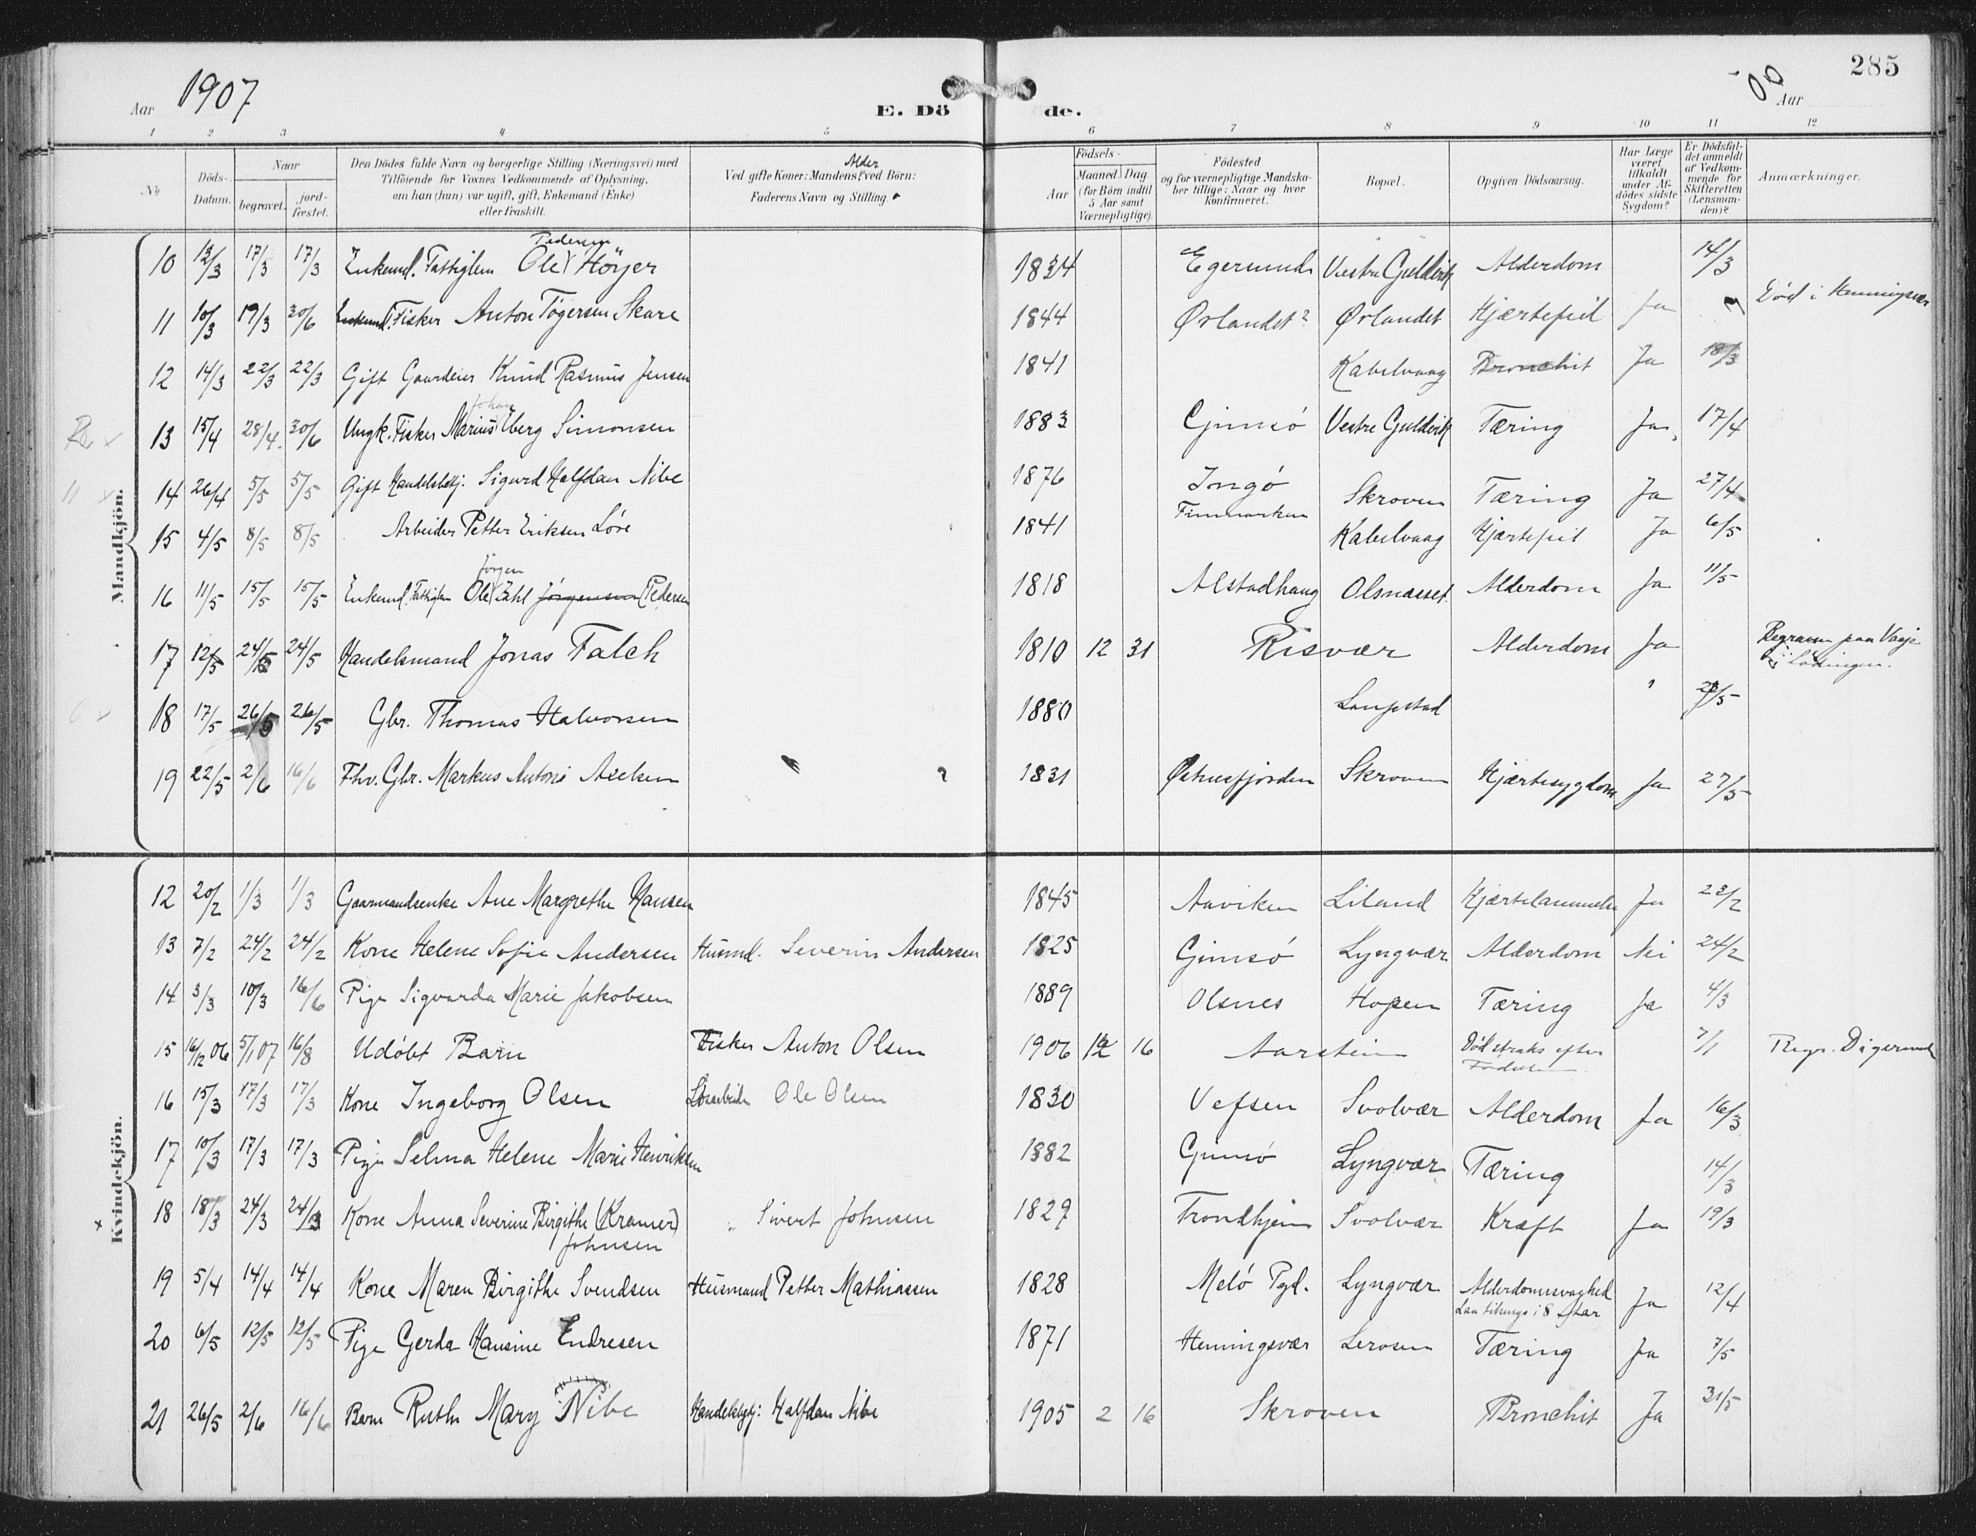 Aar 1907 E. Dö de. 00 Aar 285
1 2 3 4 5 6 7 8 9 10 11 12
No
Döds-Datum.
Naar
begravet.
jord-fæstet.
Den Dödes fulde Navn og borgerlige Stilling (Næringsvei) med
Tilföiende for Voxnes Vedkommende af Oplysning,
om han (hun) var ugift, gift, Enkemand (Enke)
eller fraskilt.
Alder
Ved gifte Koner: Mandens, ved Börn:
Faderens Navn og Stilling.
Födsels-
Aar
Maaned Dag
(for Börn indtil
5 Aar samt
Værnepligtige).
Födested
og for værnepligtige Mandska-
ber tillige: Naar og hvor
konfirmeret.
Bopæl.
Opgiven Dödsaarsag.
Har Læge
været
tilkaldt
under Af-
dödes sidste
Sygdom?
Er Dödsfal-
det anmeldt
af Vedkom-
mende for
Skifteretten
(Lensman-
den)?
Anmærkninger.
Mandkjön.
Pedersen
10 13/3 17/3 17/3 Enkemd. Fattiglem Ole Höyer 1834 Egersund Vestre Guldvik Alderdom 14/3
11 10/3 19/3 30/6 Enkemd. Fisker Anton Tögersen Skare 1844 Ørlandet? Ørlandet Hjærtefeil Ja Död i Henningsvær
12 14/3 22/3 22/3 Gift Gaardeier Knud Rasmus Jensen 1841 Kabelvaag Bronchit Ja 18/3
Johan
13 15/4 28/4 30/6 Ungk. Fisker Marius Eberg Simonsen 1883 Gimsö Vestre Guldvik Tæring Ja 17/4
14 26/4 5/5 5/5 Gift Handelsbetj. Sigurd Halfdan Nibe 1876 Ingö Finmarken Skroven Tæring Ja 27/4
15 4/5 8/5 8/5 Arbeider Petter Eriksen Löre 1841 Kabelvaag Hjærtefeil Ja 6/5
Jörgen
16 11/5 15/5 15/5 Enkemd. Fattiglem Ole Zahl Jörgensen Pedersen 1818 Alstadhaug Olsnæsset Alderdom Ja 11/5
17 12/5 24/5 24/5 Handelsmand Jonas Falch 1810 12 31 Risvær Alderdom Ja Begraven paa
i Lödingen.
18 17/5 26/5 26/5 Gbr. Thomas Halvorsen 1880 Laupstad 27/5
19 22/5 2/6 16/6 Fhv. Gbr. Markus Antoni Axelsen 1831 Østnesfjorden Skroven Hjærtesygdom Ja 27/5
Kvindekjön.
12 20/2 1/3 1/3 Gaarmandsenke Ane Margrethe Hansen 1845 Aaviken Liland Hjærtelammelse Ja 23/2
13 7/2 24/2 24/2 Kone Helene Sofie Andersen Husmd. Severin Andersen 1825 Gimsö Lyngvær Alderdom Nei 24/2
14 3/3 10/3 16/6 Pige Sigvarda Marie Jakobsen 1889 Olsnes Hopen Tæring Ja 4/3
15 16/12 06 5/1 07 16/8 Udöbt Barn Fisker Anton Olsen 1906 12 16 Aarstein Död straks efter
Födsel 7/1 Begr. Digermul
16 15/3 17/3 17/3 Kone Ingeborg Olsen Ole Olsen 1830 Vefsen Svolvær Alderdom Ja 16/3
17 10/3 17/3 17/3 Pige Selma Helene Marie Henriksen 1882 Gimsö Lyngvær Tæring 14/3
18 18/3 24/3 24/3 Kone Anna Severine Birgithe (Kramer) Johnsen " Sivert Johnsen 1829 Trondhjem Svolvær Kræft Ja 19/3
19 5/4 14/4 14/4 Kone Maren Birgithe Svendsen Husmand Petter Mathiassen 1828 Melö Pgl. Lyngvær Alderdomssvaghed
Laa tilsengs i 8 Aar Ja 12/4
20 6/5 12/5 12/5 Pige Gerda Hansine Endresen 1871 Henningsvær Lerosen Tæring Ja 7/5
21 26/5 2/6 16/6 Barn Ruth Mary Nibe Handelsbetj: Halfdan Nibe 1905 2 16 Skroven Bronchit Ja 31/5